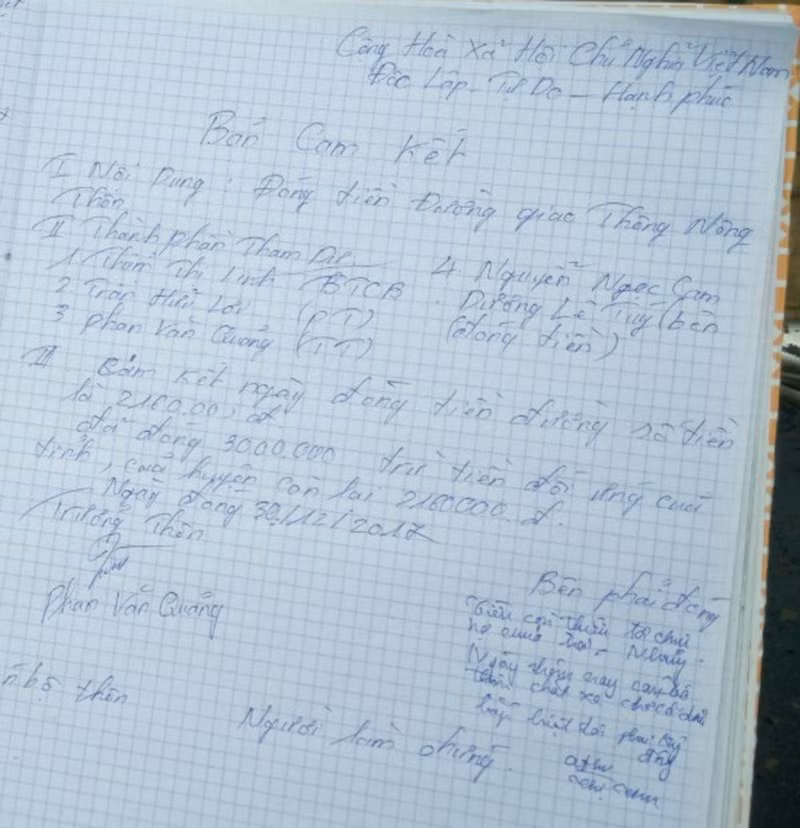 Cộng Hoà Xã Hội Chủ Nghĩa Việt Nam
Độc Lập - Tự Do - Hạnh phúc
Bản Cam Kết
I Nội Dung: Đóng tiền Đường giao Thông Nông
Thôn
II Thành phần Tham Dự
1 Thôn Thị Linh BTCB
2 Trần Hữu Lợi (PT)
3 phan Văn Quảng (TT)
4. Nguyễn Ngọc Cam
Dương Lê Tuý (bên
đóng tiền)
III Cam Kết ngày đóng tiền đường số tiền
là 2160.00, đ
đã đóng 3000.000 trừ tiền đối ứng của
tỉnh, của huyện còn lại 2160000.đ.
Ngày đóng 30/12/2017
Trưởng Thôn
Phan Văn Quảng
Bên phải đóng
Tiền còn thiếu tôi
Ngày hôm nay cán bộ
thôn xã
bắt tôi phải ký
n bộ thôn
Người làm chứng.